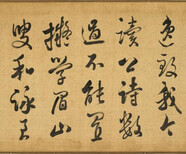 逸致我今
讀公詩數
過不能置
擬學眉山
嗖和詠王